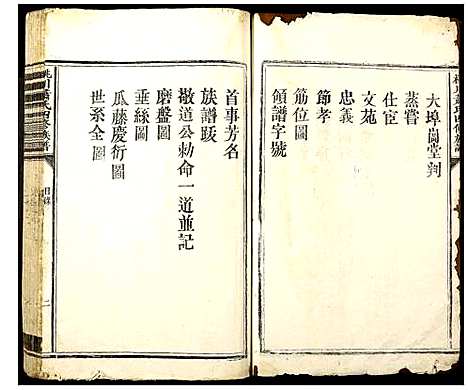 大埠崗堂判
蒸嘗
仕宦
文苑
忠義
節孝
筋位圖
領譜字號
首事芳名
族譜跋
敬道公勅命一道並記
磨盤圖
垂絲圖
瓜藤慶衍圖
世系全圖
目錄
二